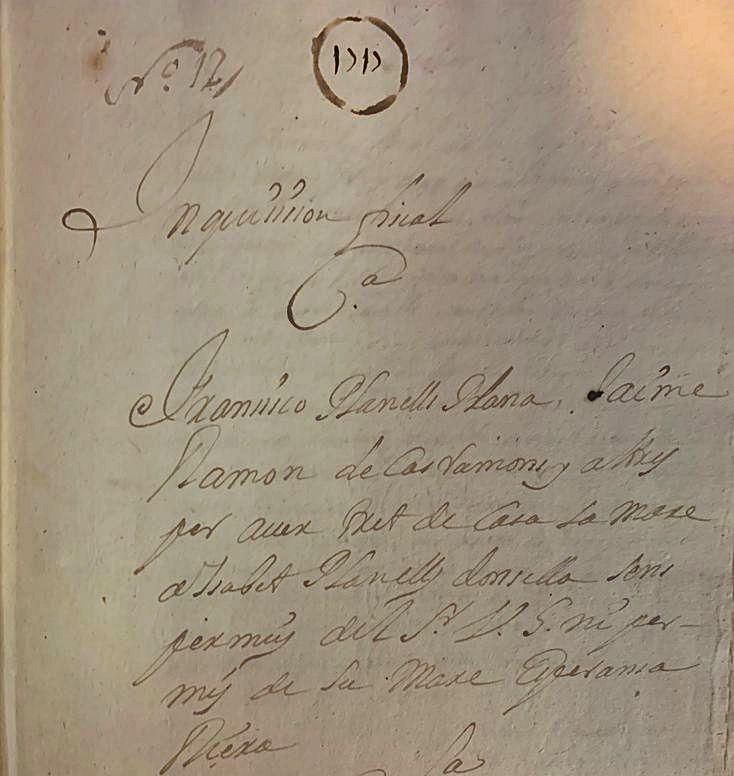 Nº 12
Inquisicion fiscal
C.ª
Francisco Planells Plana, Jaime
Ramon de Cas Ramons y altres
per aver tret de Casa sa mare
a Isabet Planells donsella sens
permis del Sr. V. G. ni per-
mis de Sa Mare Esperansa
Riera